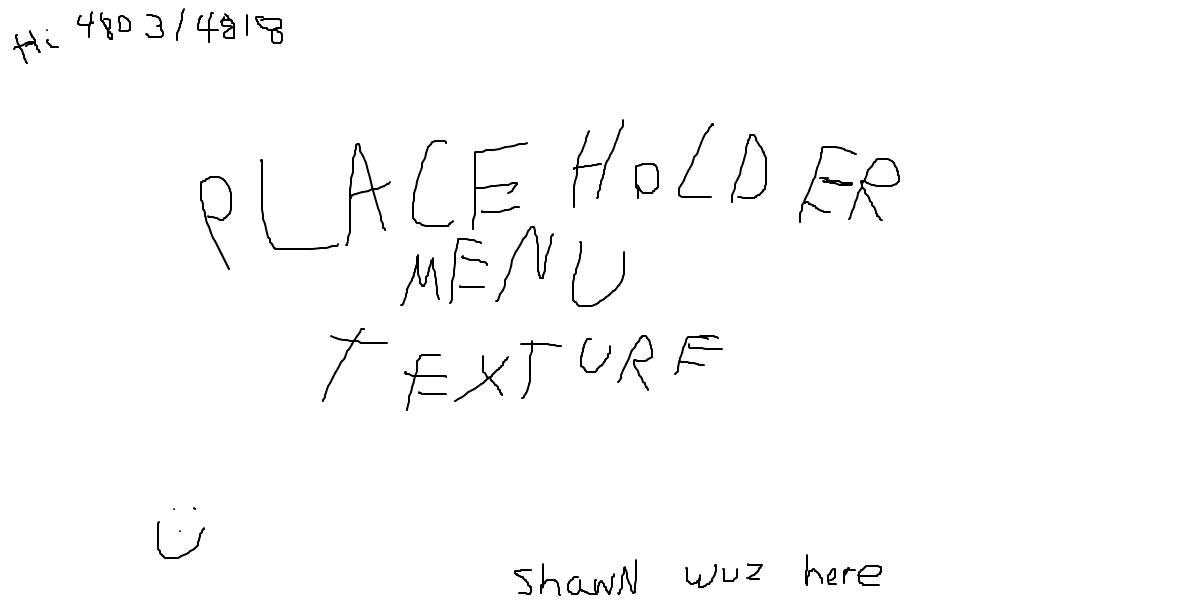 Hi 4803/4818
PLACE HOLDER
MENU
TEXTURE
shawN wuz here